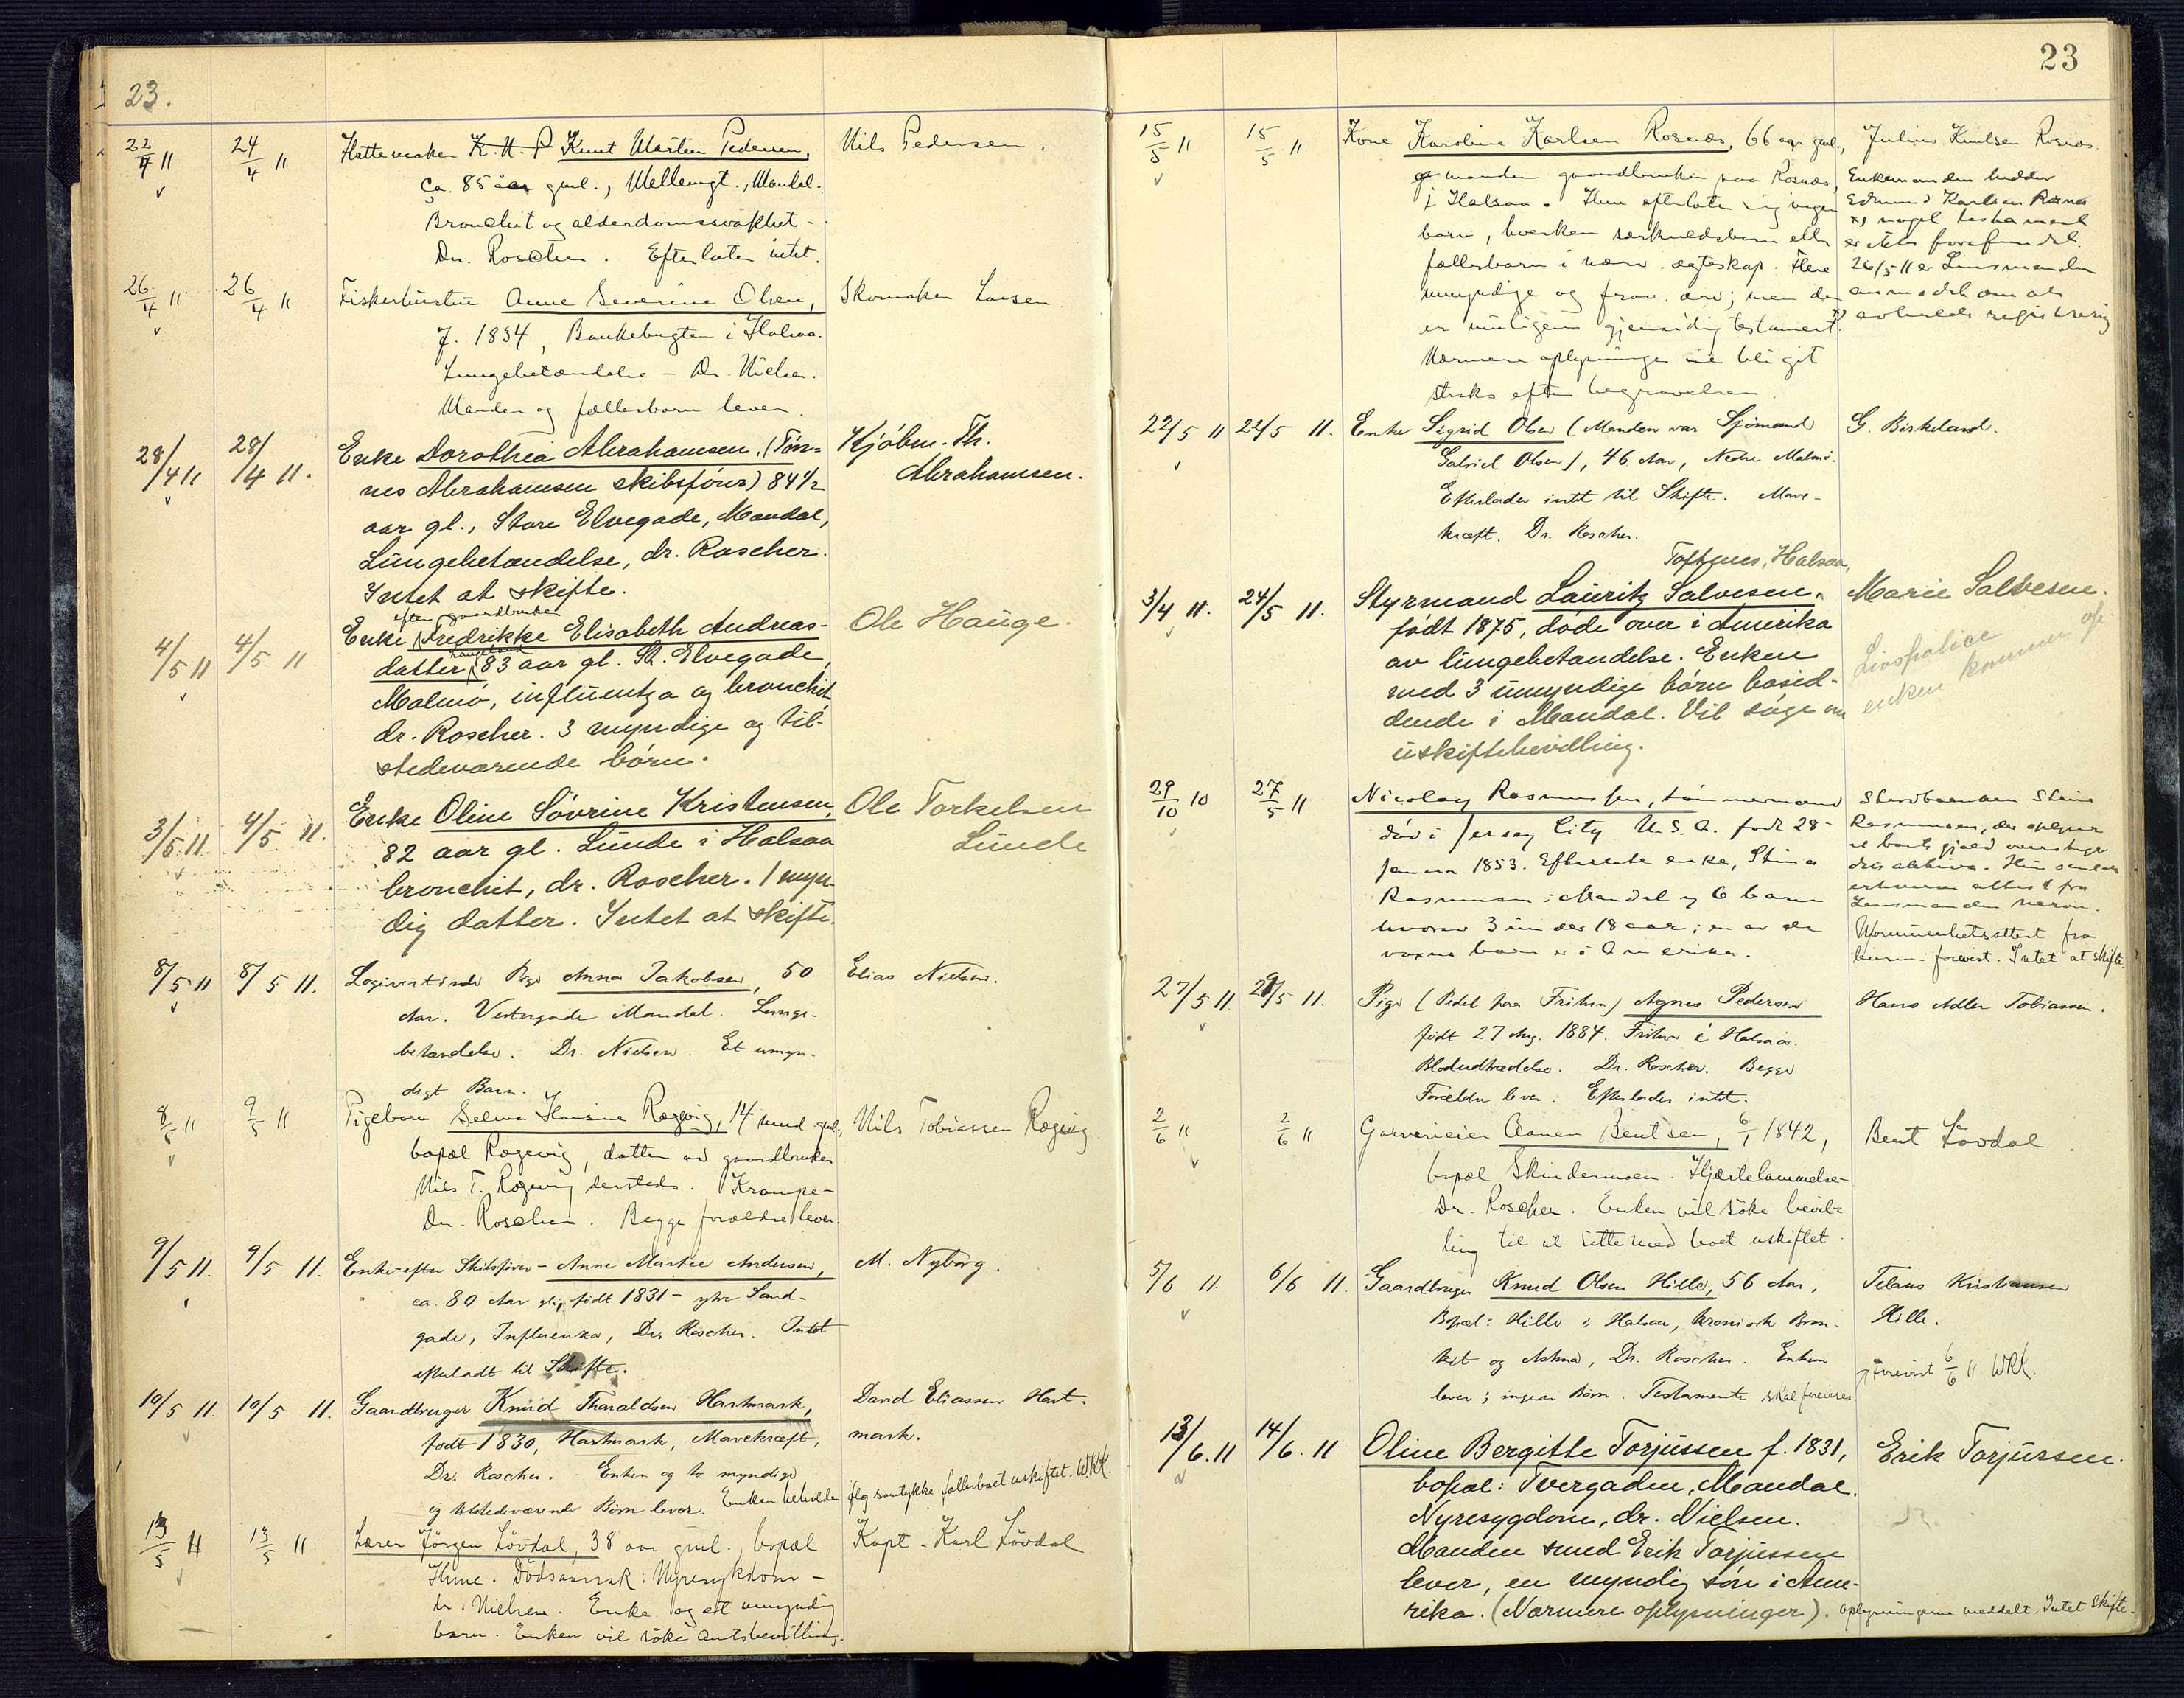 23.
22/4 11 24/4 11 Hattemaker K. M. P Knut Martin Pedersen, Nils Pedersen.
ca. 85 aar gml., Mellemgt., Mandal.
Bronchit og alderdomssvakhet -
Dr. Roscher. Efterlater intet.
26/4 11 26/4 11 Fiskerhustru Anne Severine Olsen, Skomaker Larsen.
f. 1834, Bankebugten i Halsaa.
Lungebetændelse - Dr. Nielsen.
Manden og fællesbarn lever.
28/4 11 28/4 11. Enke Dorothea Abrahamsen, (Tøn- Kjøbm. Th.
nes Abrahamsen skibsfører) 84 1/2 Abrahamsen.
aar gl., Store Elvegade, Mandal,
Lungebetændelse, dr. Roscher.
Intet at skifte.
efter gaardbruker
4/5 11 4/5 11 Enke Fredrikke Elisabeth Andreas- Ole Hauge.
datter, 83 aar gl. St. Elvegade,
Malmø, influentza og bronchit,
dr. Roscher. 3 myndige og til-
stedeværende børn.
3/5 11 4/5 11. Enke Oline Sövrine Kristensen, Ole Torkelsen
82 aar gl. Lunde i Halsaa Lunde
bronchit, dr. Roscher. 1 myn-
dig datter. Intet at skifte.
8/5 11 8/5 11. Logivertinde Pige Anna Jakobsen, 50 Elias Nielsen.
Aar. Vestergade Mandal. Lunge-
betændelse. Dr. Nielsen. Et umyn-
digt Barn.
8/5 11 9/5 11 Pigebarn Selma Hansine Rægevig, 14 mnd gml., Nils Tobiassen Rægevig
bopæl Rægevig, datter av gaardbruker
Nils T. Rægevig sammesteds. Krampe -
Dr. Roscher. Begge forældre lever.
9/5 11. 9/5 11. Enke efter Skibsfører - Anne Marthe Andersen, M. Nyborg.
ca. 80 Aar gl., født 1831 - ytre Sand-
gade, Influenza, Dr. Roscher. Intet
efterladt til Skifte.
10/5 11. 10/5 11. Gaardbruger Knud Tharaldsen Hartmark, David Eliassen Hart-
født 1830, Hartmark, Mavekræft, mark.
Dr. Roscher. Enken og to myndige
og tilstedeværende Børn lever. Enken beholder ifølg samtykke fællesboet uskiftet. WRK.
13/5 11 13/5 11 Lærer Jörgen Lövdal, 38 aar gml., bopæl Kapt. Karl Lövdal
Hime. Dödsaarsak: Nyresykdom -
dr. Nielsen. Enke og et umyndig
barn. Enken vil söke amtsbevilling.
23
15/5 11 15/5 11 Kone Karoline Karlsen Rosnæs, 66 aar gml., Julius Knutsen Rosnæs.
manden gaardbruker paa Rosnæs, Enkemanden hedder
i Halsaa. Hun efterlater sig ingen Edmund Karlsen Rosnæs
barn, hverken særkuldsbarn eller x) noget testament
fællesbarn i nærv. egteskap. Flere er ikke forefundet.
umyndige og frav. arv.; men der 26/5 11 er Lensmanden
er muligens gjensidig testament. x) anmodet om at
avholde registrering
Nærmere oplysninger vil bli git
straks efter begravelsen
22/5 11 22/5 11. Enke Sigrid Olsen (Manden var Sjømand G. Birkeland.
Gabriel Olsen), 46 Aar, Nedre Malmø.
Efterlader intet til Skifte. Mave-
kræft. Dr. Roscher.
Toftenes, Halsaa,
3/4 11. 24/5 11. Styrmand Lauritz Salvesen, Marie Salvesen.
født 1875, døde over i Amerika
av lungebetændelse. Enken Livspolice
med 3 umyndige børn bosid- enken kommer op
dende i Mandal. Vil søge om
uskiftebevilling.
29/10 10 27/5 11 Nicolay Rasmussen, tømmermand Skredderske Stine
død i Jersey City U.S.A. født 28 Rasmussen, der opgir
Januar 1853. Efterlater enke, Stine at boets gjæld overstiger
Rasmussen i Mandal og 6 barn
hvorav 3 under 18 aar; en av de
voxne barn er i Amerika. Lensmanden herom.
Formuenhetsattest fra
lensm. forevist. Intet at skifte.
27/5 11. 29/5 11. Pige (Pedel paa Fredheim) Agnes Pedersen Hans Adler Tobiassen.
født 27 Aug. 1884. i Halsaa.
Blodudtrædelse. Dr. Roscher. Begge
Forældre lever. Efterlader intet.
2/6 11 2/6 11 Garverieier Aanen Bentsen, 6/1 1842, Bent Lövdal
bopæl Skindermoen. Hjertelammelse -
Dr. Roscher. Enken vil söke bevil-
ling til at sitte med boet uskiftet.
5/6 11. 6/6 11. Gaardbruger Knud Olsen Hille, 56 Aar, Telans Kristiansen
Bopæl: Hille i Halsaa, kronisk Bron- Hille.
kit og Astma, Dr. Roscher. Enken
lever; ingen Børn. Testamente skal forevises. forevist 6/6 11 WRK.
13/6. 11 14/6. 11 Oline Bergitte Torjussen f. 1831, Erik Torjussen.
bopæl: Tvergaden, Mandal.
Nyresygdom, dr. Nielsen.
Manden smed Erik Torjussen
lever, en myndig søn i Ame-
rika. (Nærmere oplysninger). oplysningerne meddelt. Intet skifte.